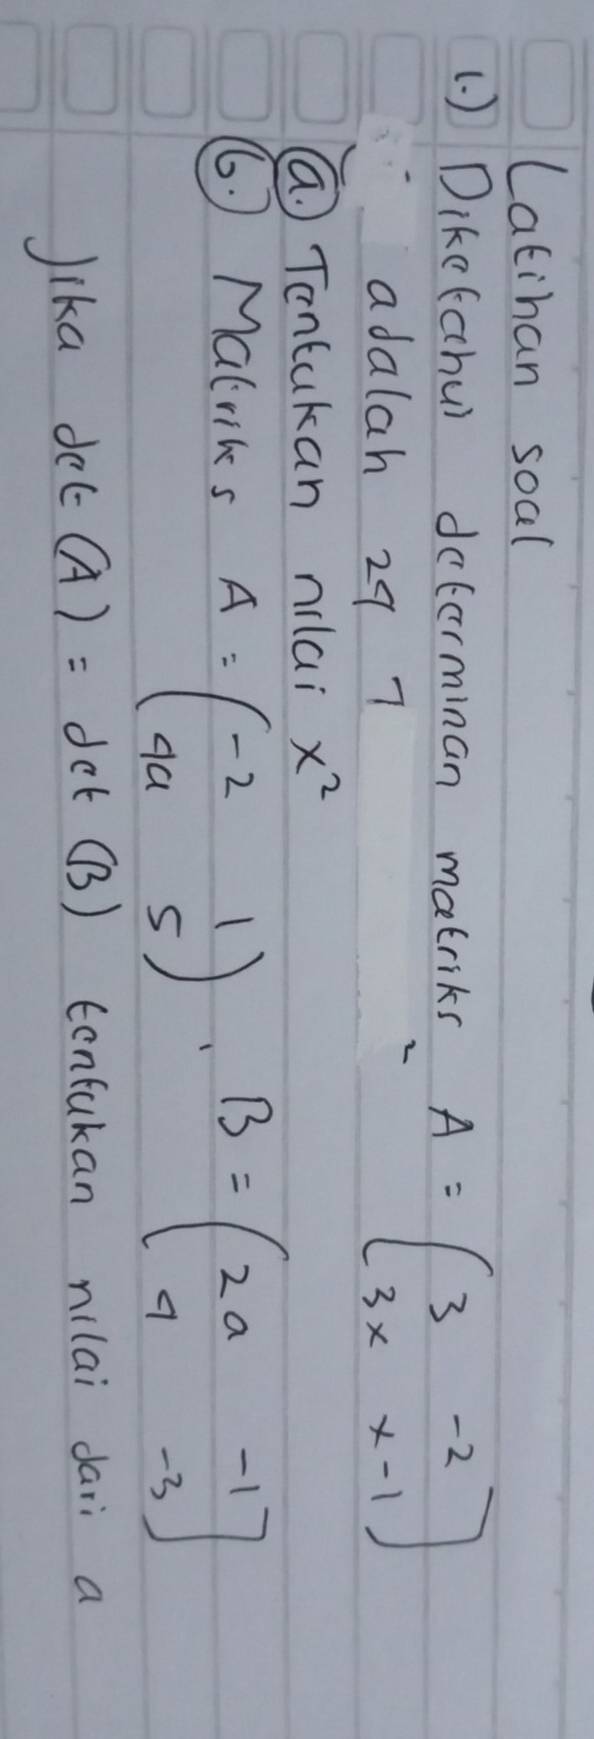 Latihan soal
1.) Diketahui determinan matriks A = ( 3 -2
3x x-1 )
adalah 24
a. Tentukan nilai x²
b. Matriks A = ( -2 1
4a 5 ) , B = ( 2a -1
4 -3 )
Jika det (A) = det (B) tentukan nilai dari a